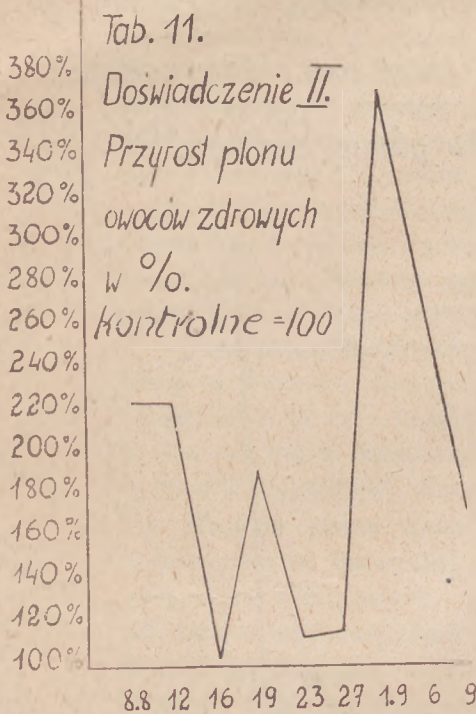 Tab. 11.
Doświadczenie II.
Przyrost plonu
owoców zdrowych
w %.
kontrolne =100
380%
360%
340%
320%
300%
280%
260%
240%
220%
200%
180%
160%
140%
120%
100%
8.8 12 16 19 23 27 1.9 6 9